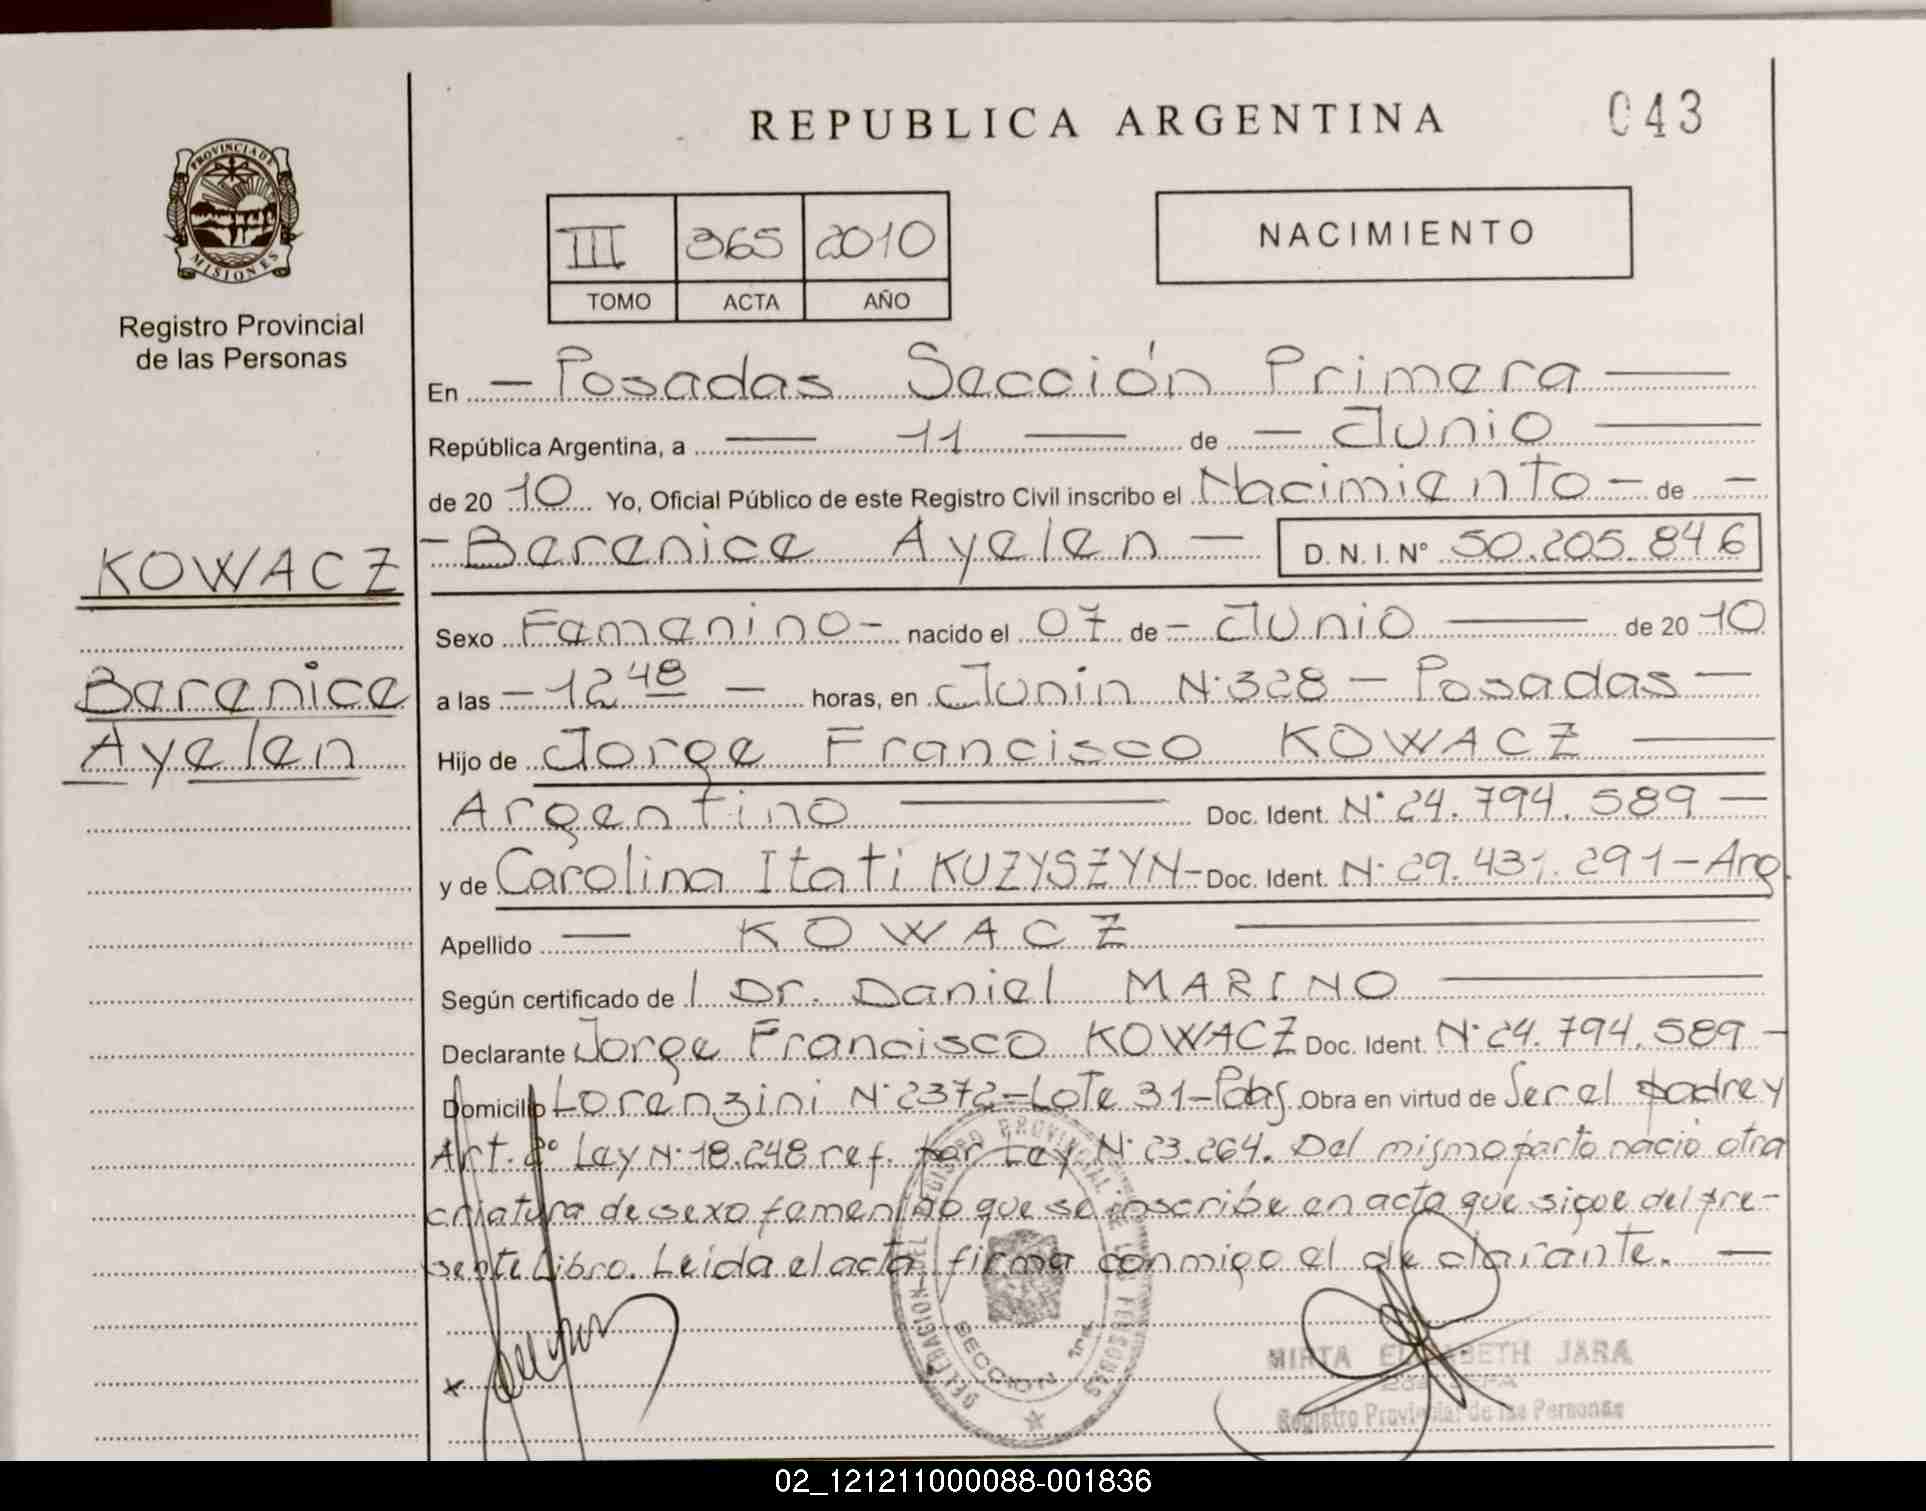 REPUBLICA ARGENTINA
043
PROVINCIA DE
MISIONES
Registro Provincial
de las Personas
III 365 2010
TOMO ACTA AÑO
NACIMIENTO
En - Posadas Sección Primera
República Argentina, a 11 de - Junio
de 2010 Yo, Oficial Público de este Registro Civil inscribo el Nacimiento - de -
- Berenice Ayelen - D.N.I.N° 50.205.846
KOWACZ
Berenice
Ayelen
Sexo Femenino - nacido el 07 de - Junio de 2010
a las - 12 48 - horas, en Junin N° 328 - Posadas -
Hijo de Jorge Francisco KOWACZ
Argentino Doc. Ident. N° 24.794.589 -
y de Carolina Itati KUZYSZYN - Doc. Ident. N° 29.431.291 - Arg.
Apellido - KOWACZ
Según certificado de l Dr. Daniel MARINO
Declarante Jorge Francisco KOWACZ Doc. Ident. N° 24.794.589 -
Domicilio Lorenzini N° 2372 - Lote 31 - Pdas. Obra en virtud de Ser el padre y
Art. 2° Ley N° 18.248 ref. por Ley N° 23.264. Del mismo parto nació otra
criatura de sexo femenino que se inscribe en acta que sigue del pre-
sente Libro. Leida el acta, firma conmigo el declarante. -
x
DELEGACION DEL REGISTRO PROVINCIAL DE LAS PERSONAS
SECCION 1ra
MIRTA ELIZABETH JARA
Registro Provincial de las Personas
02_121211000088-001836